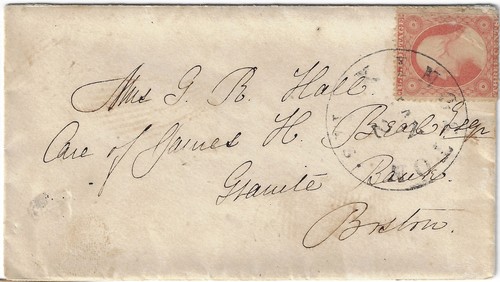 Mrs G. R. Hall.
Care of James H. Beal Esqr
Granite Bank
Boston.